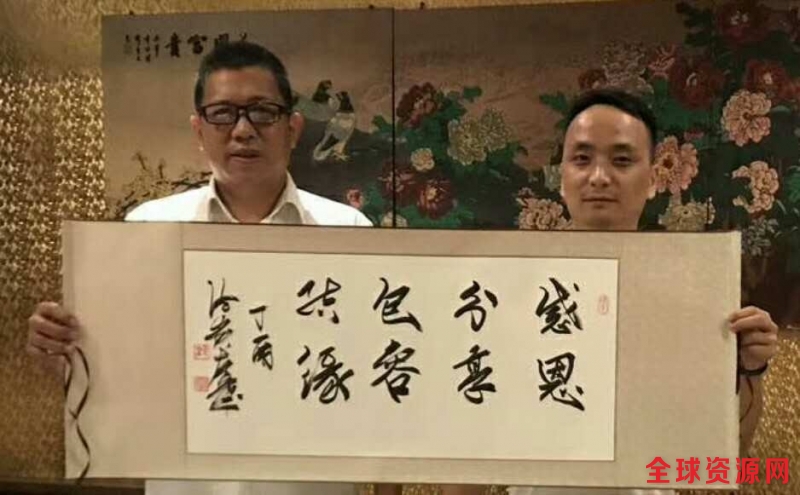 開富貴
感恩
分享
包容
结缘
丁酉
全球资源网